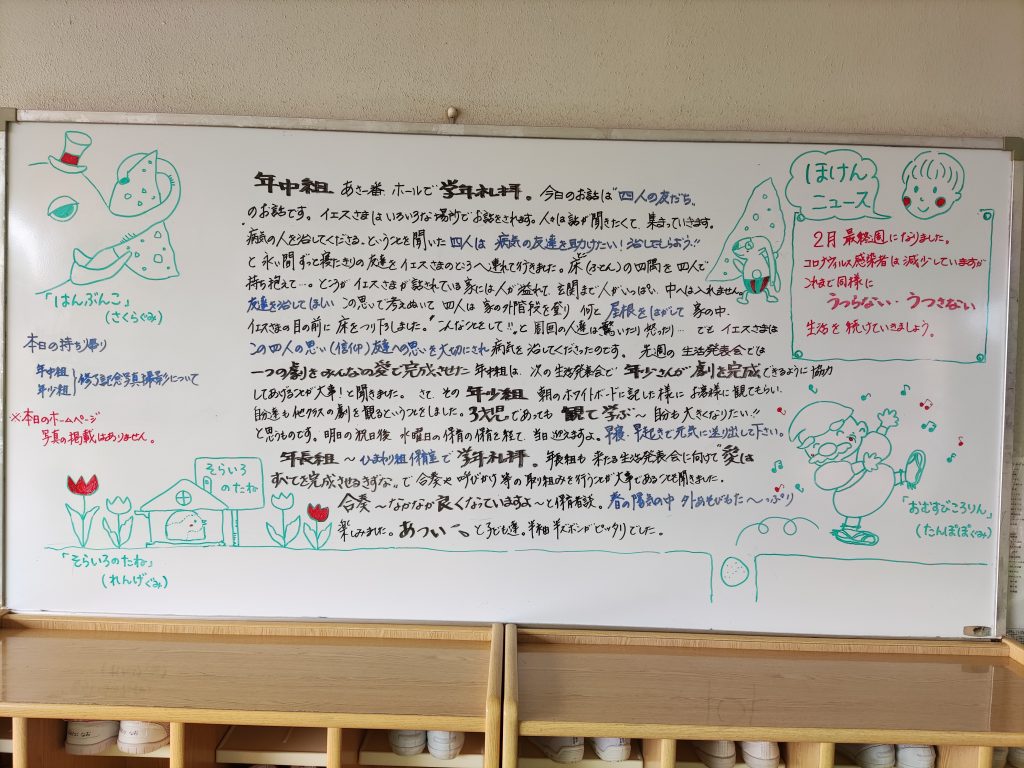 年中組 あさ一番 ホールで 学年礼拝。今日のお話は"四人の友だち"
のお話です。イエスさまはいろいろな場所でお話をされます。人々は話が聞きたくて、集まっていきます。
病気の人を治してくださる、ということを聞いた 四人は 病気の友達を助けたい!治してもらおう!!
と 永い間 ずっと寝たきりの友達を イエスさまのところへ連れて行きました。床(ふとん)の四隅を四人で
持ち抱えて…。ところが イエスさまが話されている家には人が溢れて、玄関まで人がいっぱい、中へは入れません。
友達を治してほしい この思いで考えぬいて 四人は 家の外階段を登り 何と 屋根をはがして 家の中、
イエスさまの目の前に 床をつり下しました。"こんなことをして!!"と 周囲の人達は驚いたり 怒ったり… でも イエスさまは
この四人の思い(信仰)友達への思いを大切にされ 病気を治してくださったのです。 先週の 生活発表会では
一つの劇をみんなの愛で完成させた 年中組は、次の生活発表会で 年少さんが 劇を完成できるように 協力
してあげることが大事!と聞きました。 さて、その 年少組 朝のホワイトボードに記した様に お客様に観てもらい、
自分達も他クラスの劇を観るということをしました。3歳児であっても 観て学ぶ〜 自分も大きくなりたい!!
と思うものです。明日の祝日後 水曜日の保育の保育を経て、当日迎えますよ。早寝・早起きで元気に送り出して下さい。
年長組 〜ひまわり組保育室で 学年礼拝。年長組も 来たる生活発表会に向けて"愛は
すべてを完成させるきずな。で 合奏と 呼びかけ 等の取り組みを行うことが大事であることを聞きました。
合奏 〜なかなか良くなっていますよ〜と保育者談。 春の陽気の中 外あそびもた〜っぷり
楽しみました。あつい〜。と子ども達。半袖 半ズボンがピッタリでした。
「はんぶんこ」
(さくらぐみ)
本日の持ち帰り
年中組
年少組
修了記念写真撮影について
※本日のホームページ
写真の掲載はありません。
そらいろ
のたね
「そらいろのたね」
(れんげぐみ)
ほけん
ニュース
2月 最終週になりました。
コロナウイルス感染者は減少していますが
これまで同様に
うつらない・うつさない
生活を続けていきましょう。
「おむすびころりん」
(たんぽぽぐみ)